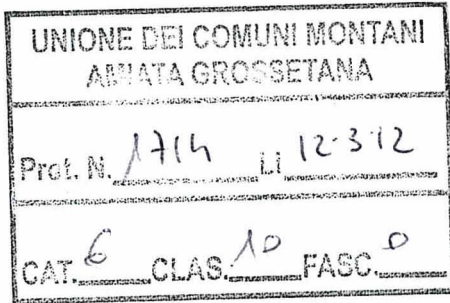 UNIONE DEI COMUNI MONTANI
AMIATA GROSSETANA
Prot. N. 1714 Li 12-3-12
CAT. 6 CLAS. 10 FASC. 0